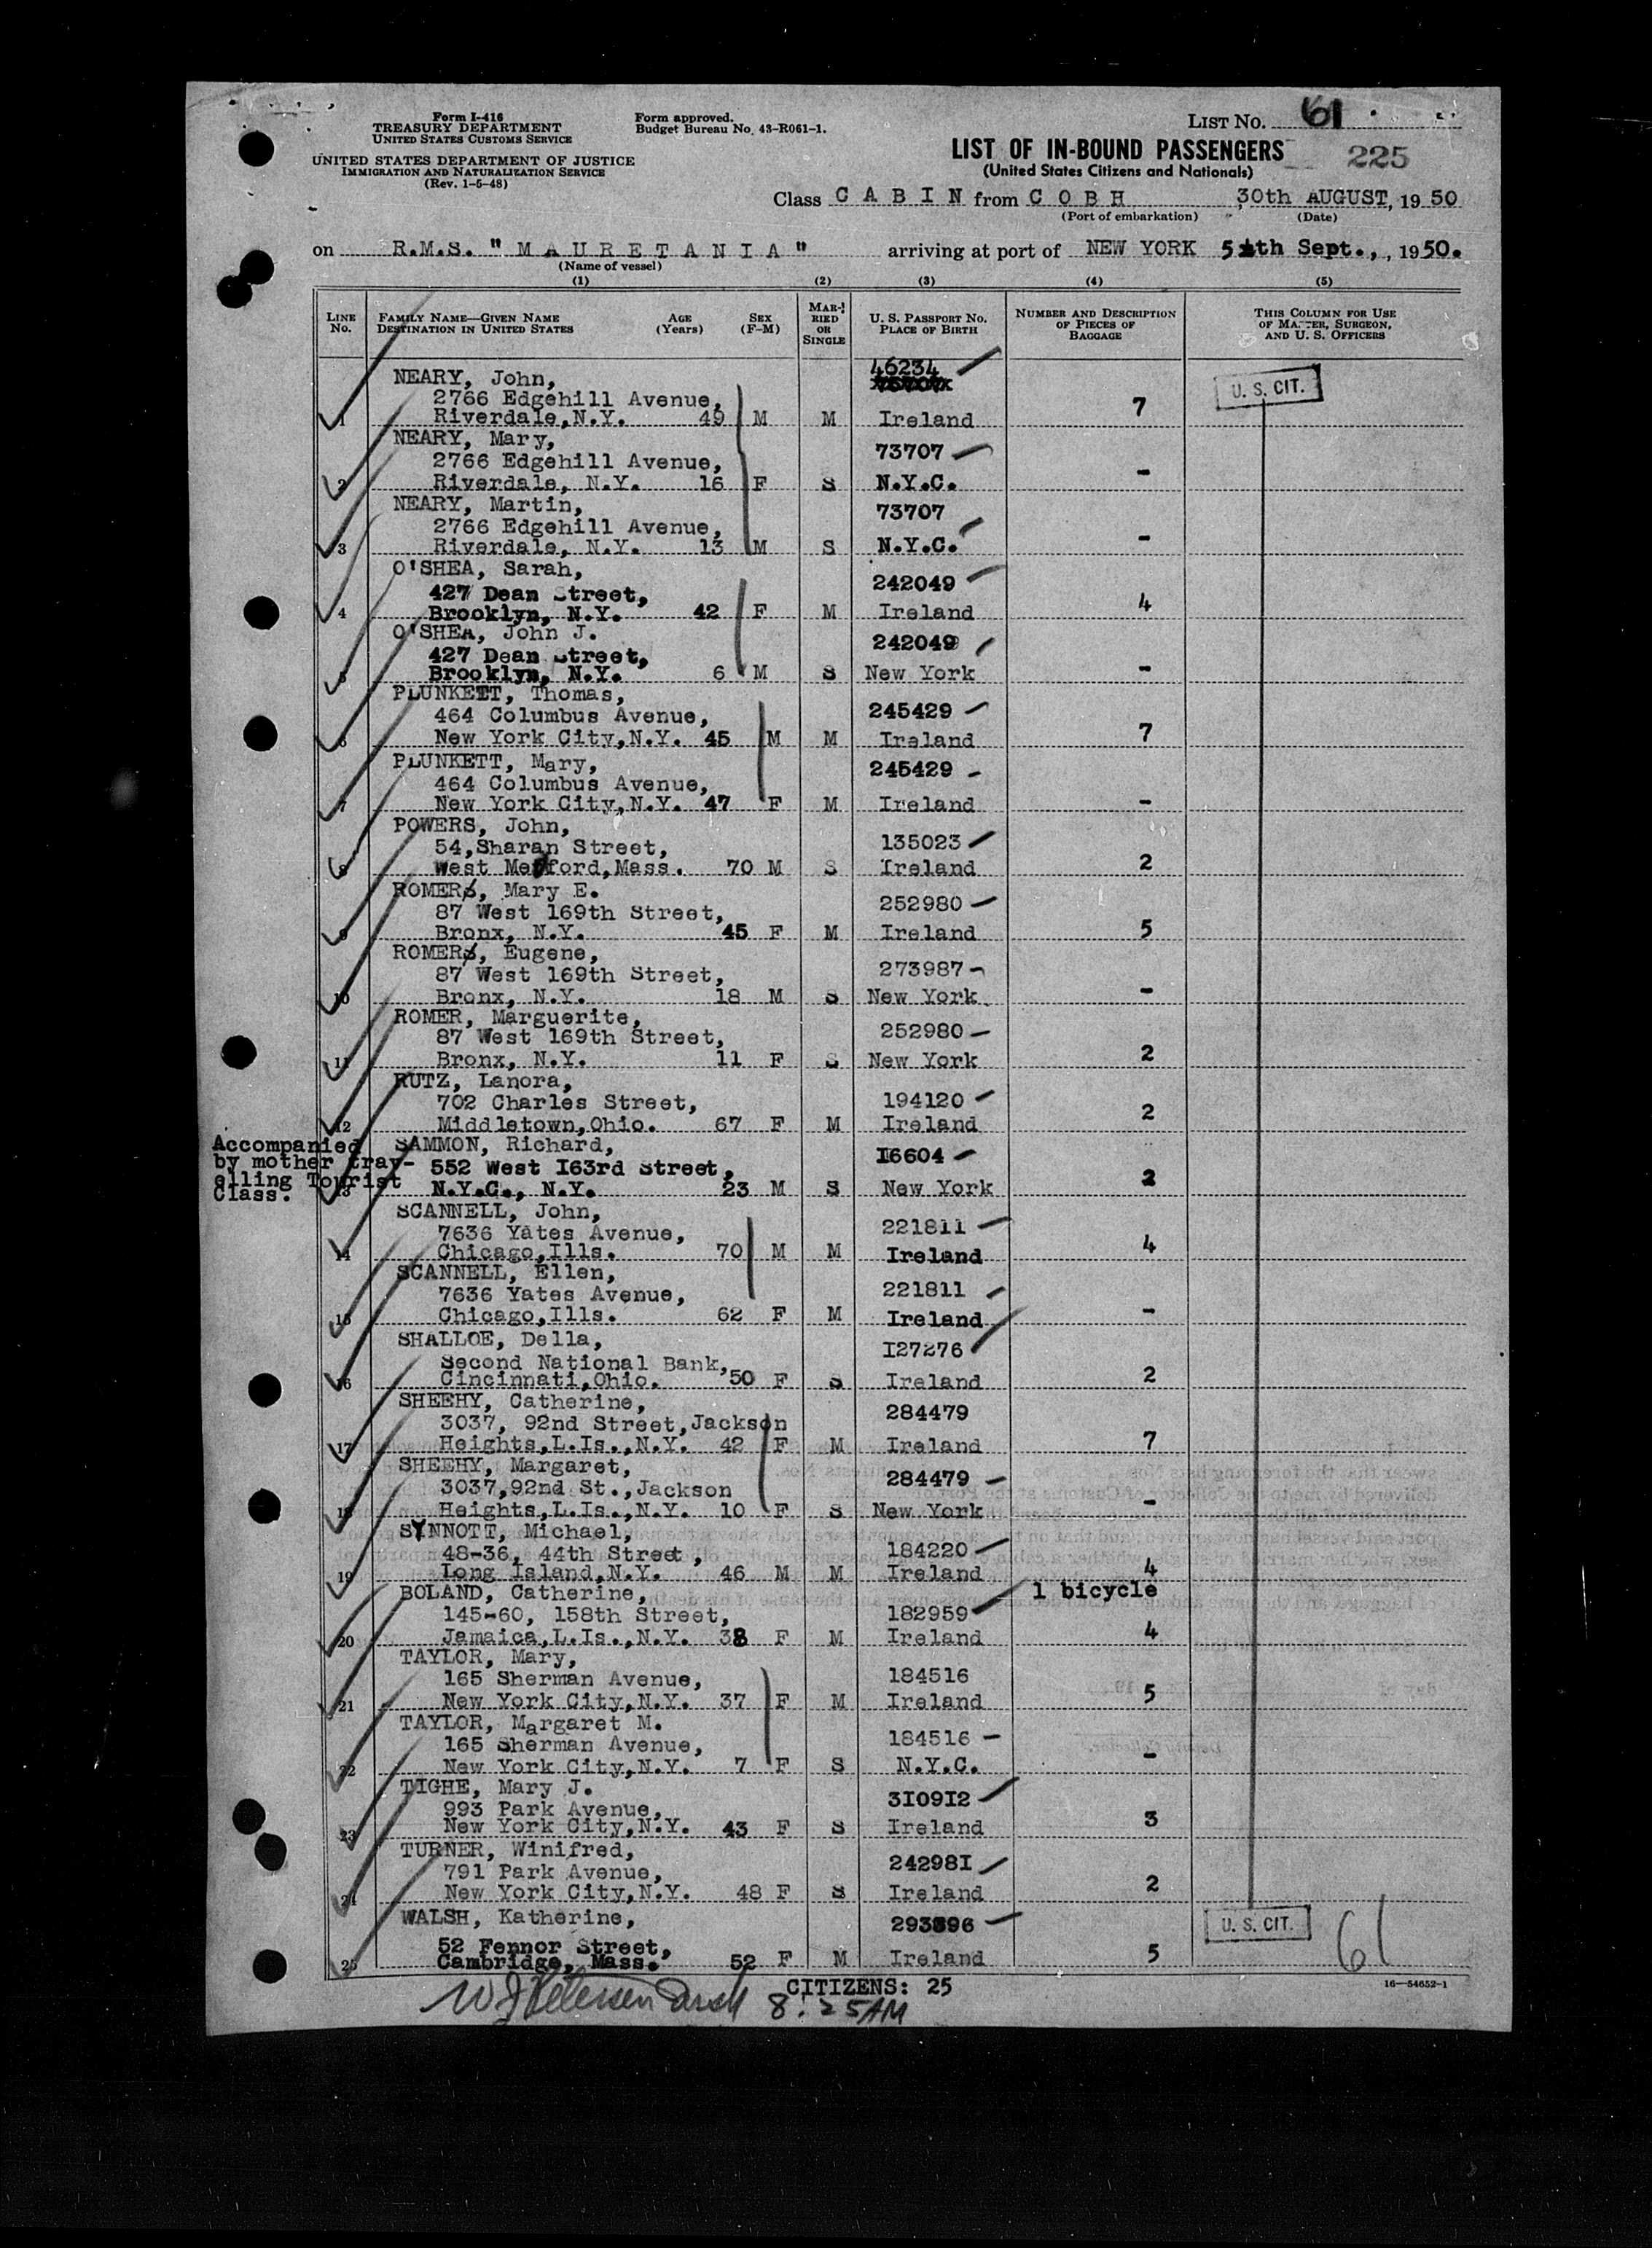 Form I-416
TREASURY DEPARTMENT
UNITED STATES CUSTOMS SERVICE
UNITED STATES DEPARTMENT OF JUSTICE
IMMIGRATION AND NATURALIZATION SERVICE
(Rev. 1-5-48)
Form approved.
Budget Bureau No. 43-R061-1.
LIST No. 61
LIST OF IN-BOUND PASSENGERS 225
(United States Citizens and Nationals)
Class CABIN from COBH 30th AUGUST, 1950
(Port of embarkation) (Date)
on R.M.S. "MAURETANIA" arriving at port of NEW YORK 5th Sept., , 1950.
(Name of vessel)
(1) (2) (3) (4) (5)
LINE No. FAMILY NAME—GIVEN NAME DESTINATION IN UNITED STATES AGE (Years) SEX (F-M) MARRIED OR SINGLE U. S. PASSPORT No. PLACE OF BIRTH NUMBER AND DESCRIPTION OF PIECES OF BAGGAGE THIS COLUMN FOR USE OF MASTER, SURGEON, AND U. S. OFFICERS
NEARY, John, 46234
2766 Edgehill Avenue, U. S. CIT.
1 Riverdale,N.Y. 49 M M Ireland 7
NEARY, Mary, 73707
2766 Edgehill Avenue,
2 Riverdale, N.Y. 16 F S N.Y.C. -
NEARY, Martin, 73707
2766 Edgehill Avenue,
3 Riverdale, N.Y. 13 M S N.Y.C. -
O'SHEA, Sarah, 242049
427 Dean Street,
4 Brooklyn, N.Y. 42 F M Ireland 4
O'SHEA, John J. 242049
427 Dean Street,
5 Brooklyn, N.Y. 6 M S New York -
PLUNKETT, Thomas, 245429
464 Columbus Avenue,
6 New York City,N.Y. 45 M M Ireland 7
PLUNKETT, Mary, 245429
464 Columbus Avenue,
7 New York City,N.Y. 47 F M Ireland -
POWERS, John, 135023
54,Sharan Street,
8 West Medford,Mass. 70 M S Ireland 2
ROMER, Mary E. 252980
87 West 169th Street,
9 Bronx, N.Y. 45 F M Ireland 5
ROMER, Eugene, 273987
87 West 169th Street,
10 Bronx, N.Y. 18 M S New York -
ROMER, Marguerite, 252980
87 West 169th Street,
11 Bronx, N.Y. 11 F S New York 2
RUTZ, Lanora, 194120
702 Charles Street,
12 Middletown,Ohio. 67 F M Ireland 2
Accompanied by mother trav-elling Tourist Class.
SAMMON, Richard, I6604
552 West I63rd Street,
13 N.Y.C., N.Y. 23 M S New York 2
SCANNELL, John, 221811
7636 Yates Avenue,
14 Chicago,Ills. 70 M M Ireland 4
SCANNELL, Ellen, 221811
7636 Yates Avenue,
15 Chicago,Ills. 62 F M Ireland -
SHALLOE, Della, I27276
Second National Bank,
16 Cincinnati,Ohio. 50 F S Ireland 2
SHEEHY, Catherine, 284479
3037, 92nd Street,Jackson
17 Heights,L.Is.,N.Y. 42 F M Ireland 7
SHEEHY, Margaret, 284479
3037,92nd St.,Jackson
18 Heights,L.Is.,N.Y. 10 F S New York -
SYNNOTT, Michael, 184220
48-36, 44th Street,
19 Long Island,N.Y. 46 M M Ireland 4
BOLAND, Catherine, 182959 1 bicycle
145-60, 158th Street,
20 Jamaica,L.Is.,N.Y. 38 F M Ireland 4
TAYLOR, Mary, 184516
165 Sherman Avenue,
21 New York City,N.Y. 37 F M Ireland 5
TAYLOR, Margaret M. 184516
165 Sherman Avenue,
22 New York City,N.Y. 7 F S N.Y.C. -
TIGHE, Mary J. 3I09I2
993 Park Avenue,
23 New York City,N.Y. 43 F S Ireland 3
TURNER, Winifred, 24298I
791 Park Avenue,
24 New York City,N.Y. 48 F S Ireland 2
WALSH, Katherine, U. S. CIT. 61
52 Fennor Street,
25 Cambridge, Mass. 52 F M Ireland 5
CITIZENS: 25 16—54652-1
8:25AM